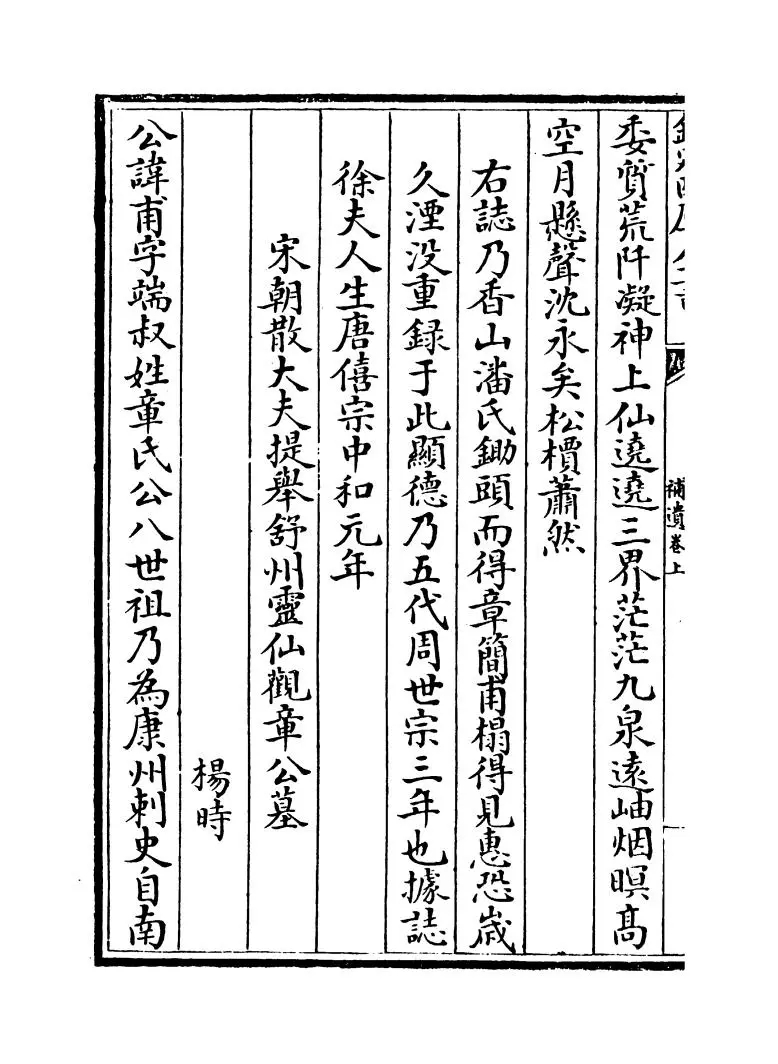 補遺卷上
委質荒阡凝神上仙遶遶三界茫茫九泉遠岫烟暝髙
空月懸聲沈永矣松檟蕭然
右誌乃香山潘氏鋤頭而得章簡甫榻得見惠恐歳
久湮没重録于此顯德乃五代周世宗三年也據誌
徐夫人生唐僖宗中和元年
宋朝散大夫提舉舒州靈仙觀章公墓
楊時
公諱甫字端叔姓章氏公八世祖乃為康州刺史自南